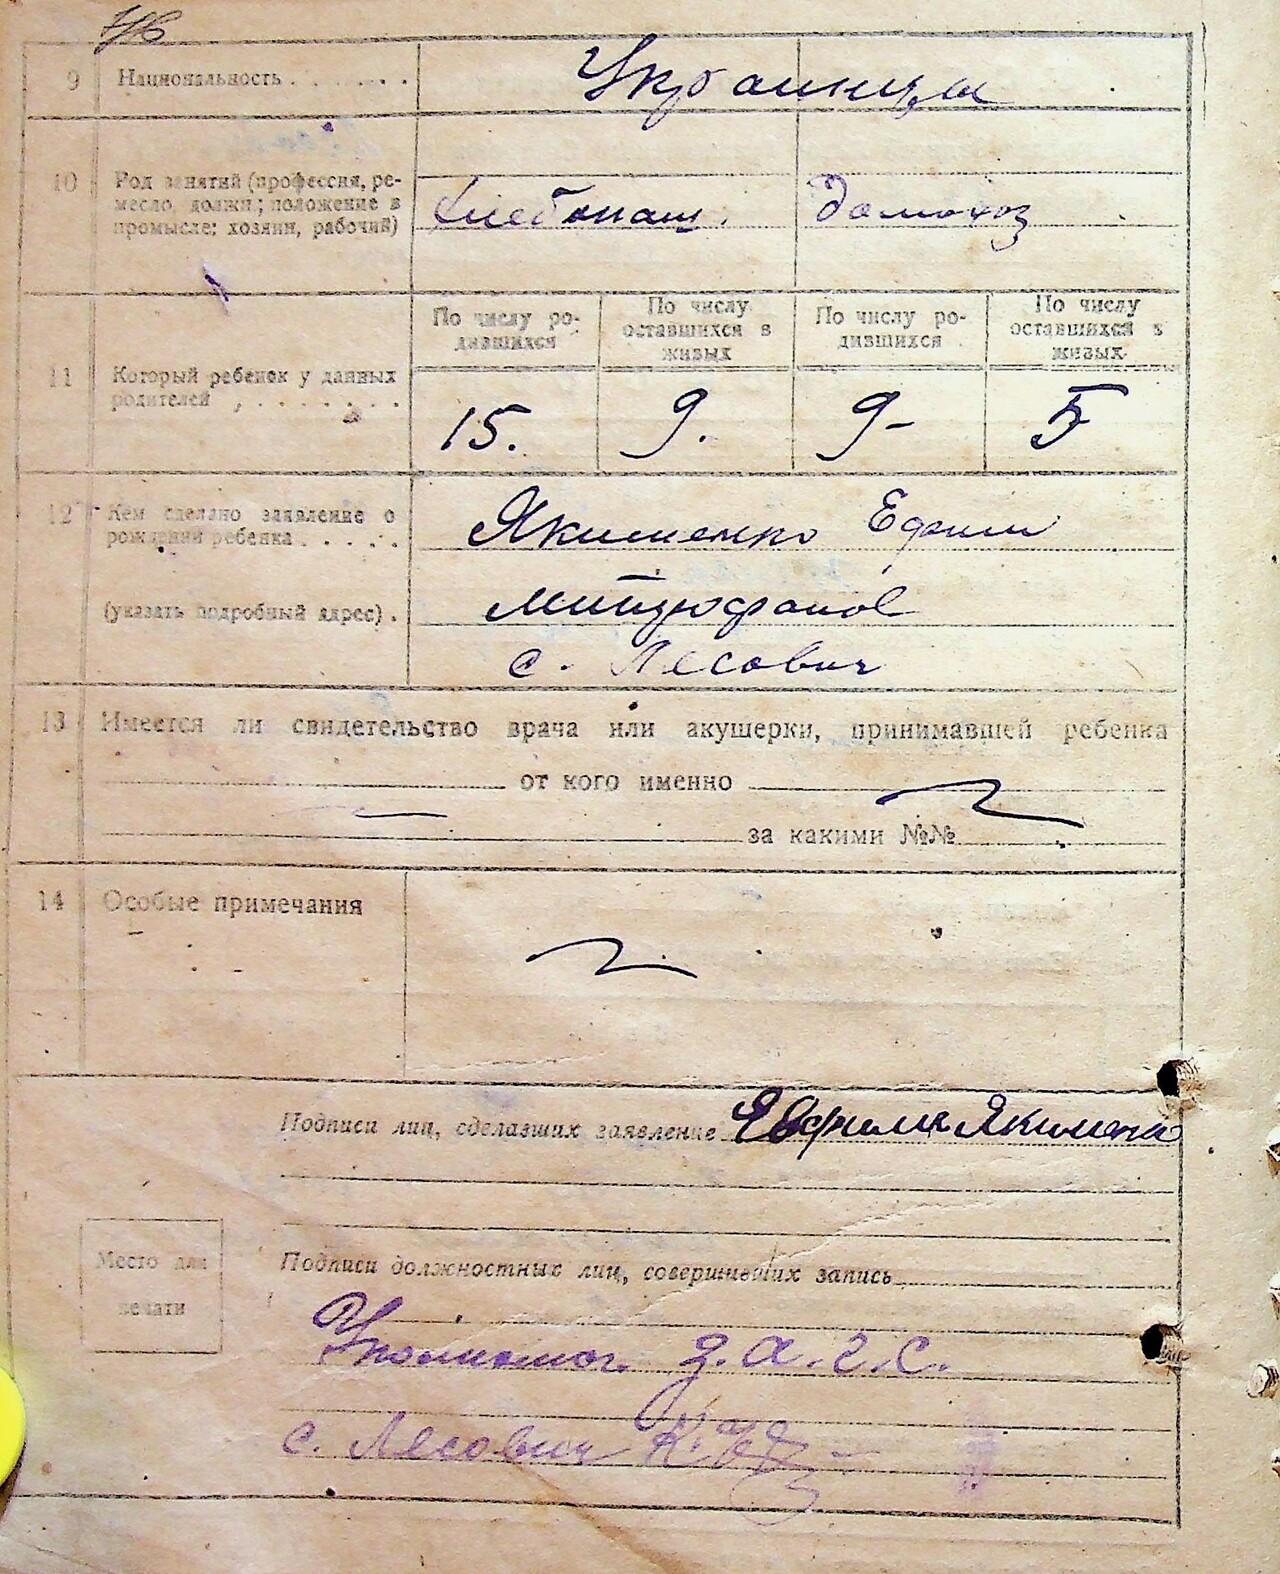 9 Национальность Украинцы
10 Род занятий (профессия, ре-
месло, должн; положение в
промысле: хозяин, рабочий)
хлебопаш. домохоз
По числу ро-
дившихся
По числу
оставшихся в
живых
По числу ро-
дившихся
По числу
оставшихся в
живых
11 Который ребенок у данных
родителей
15. 9. 9- 5
12 Кем сделано заявление о
рождении ребенка
Якименко
(указать подробный адрес).
с. Лесович
13 Имеется ли свидетельство врача или акушерки, принимавшей ребенка
от кого именно
за какими №№
14 Особые примечания
Подписи лиц, сделавших заявление
Подписи должностных лиц, совершивших запись
Место для
печати
З.А.Г.С.
с. Лесович